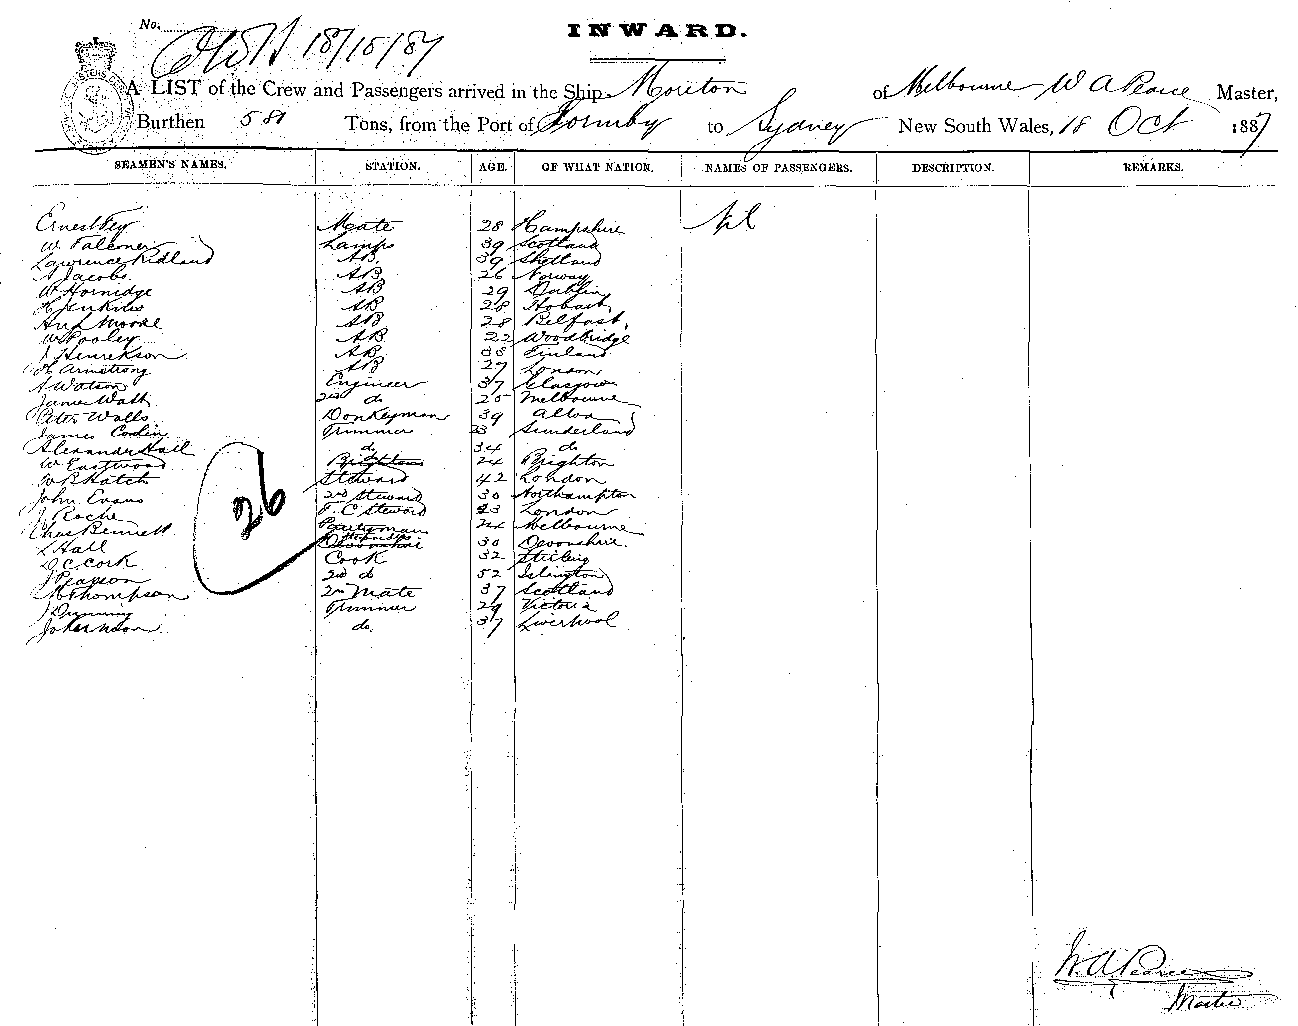 No.
18/10/87
INWARD.
A LIST of the Crew and Passengers arrived in the Ship Moreton of Melbourne W A Pearce Master,
Burthen 581 Tons, from the Port of Formby to Sydney New South Wales, 18 Oct 1887
SEAMEN'S NAMES. STATION. AGE. OF WHAT NATION. NAMES OF PASSENGERS. DESCRIPTION. REMARKS.
Ernest Fey Mate 28 Hampshire Nil
W Falconer Lamps 39 Scotland
Lawrence Ridland AB. 39 Shetland
A Jacobs AB 26 Norway
W Hornidge AB 29 Dublin
H Jenkins AB 28 Hobart
Moore AB 28 Belfast,
W Pooley AB 22 Woodbridge
J Henrekson AB 38 Finland
H Armstrong AB 27 London
A Watson Engineer 37 Glasgow
James Watt 2nd do 25 Melbourne
Peter Walls Donkeyman 39 Alloa
James Trimmer 33 Sunderland
Alexander Hall do 34 do
W Eastwood do Brighton 24 Brighton
W B Hatch Steward 42 London
John Evans 2nd Steward 30 Northampton
J Roche F. C Steward 23 London
Chas Bennett Pantryman 24 Melbourne
L Hall Devonshire 30 Devonshire.
D C Cork Cook 32 Stirling
J Pearson 2nd do 52 Islington
Thompson 2nd Mate 37 Scotland
J Dunning Trimmer 29 Victoria
do. 37 Liverpool
26
W. A. Pearce
Master